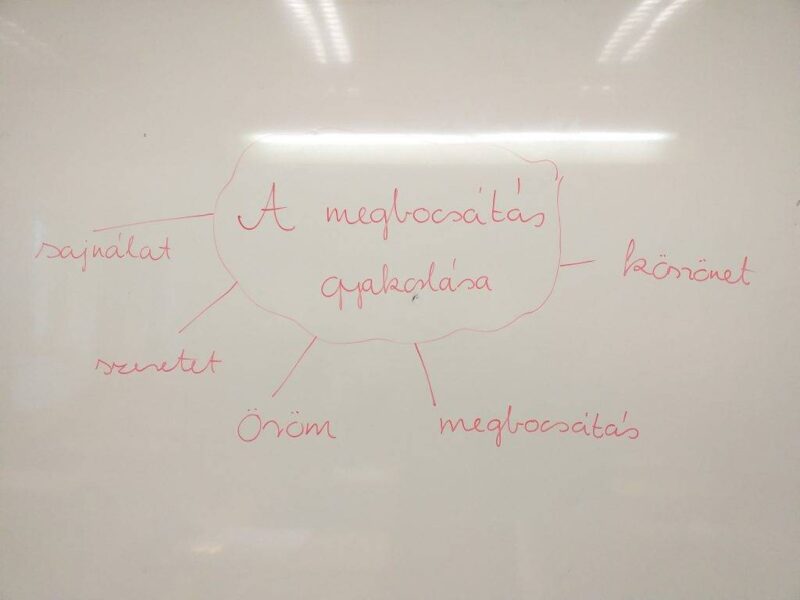 A megbocsátás
gyakorlása
sajnálat
szeretet
Öröm
megbocsátás
köszönet